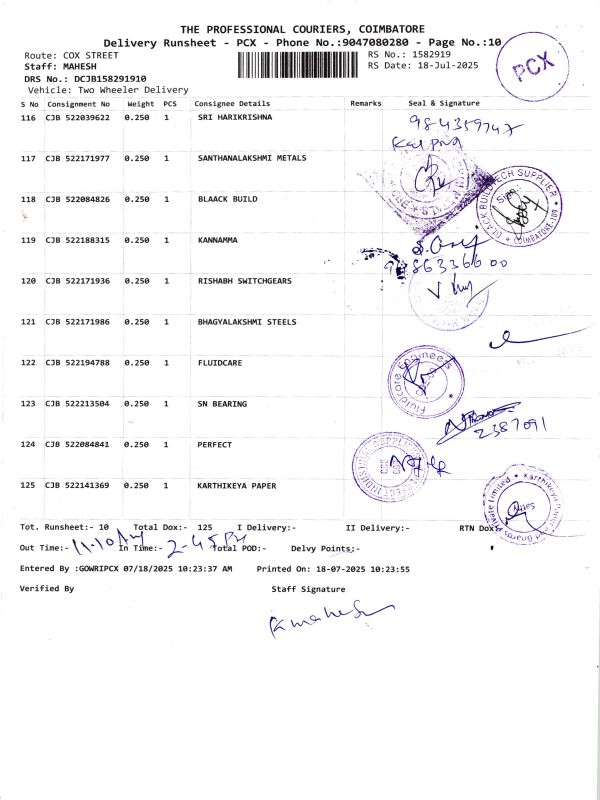 THE PROFESSIONAL COURIERS, COIMBATORE
Delivery Runsheet - PCX - Phone No.:9047080280 - Page No.:10
Route: COX STREET
RS No.: 1582919
Staff: MAHESH
RS Date: 18-Jul-2025
DRS No.: DCJB158291910
Vehicle: Two Wheeler Delivery
PCX
S No Consignment No Weight PCS Consignee Details Remarks Seal & Signature
116 CJB 522039622 0.250 1 SRI HARIKRISHNA
117 CJB 522171977 0.250 1 SANTHANALAKSHMI METALS
118 CJB 522084826 0.250 1 BLAACK BUILD
119 CJB 522188315 0.250 1 KANNAMMA
863366 00
120 CJB 522171936 0.250 1 RISHABH SWITCHGEARS
121 CJB 522171986 0.250 1 BHAGYALAKSHMI STEELS
122 CJB 522194788 0.250 1 FLUIDCARE
Fluidcare Engineers
123 CJB 522213504 0.250 1 SN BEARING
2387091
124 CJB 522084841 0.250 1 PERFECT
125 CJB 522141369 0.250 1 KARTHIKEYA PAPER
Tot. Runsheet:- 10 Total Dox:- 125 I Delivery:- II Delivery:- RTN Dox:-
Out Time:- 11-10 AM In Time:- 2-45 PM Total POD:- Delvy Points:-
Entered By :GOWRIPCX 07/18/2025 10:23:37 AM Printed On: 18-07-2025 10:23:55
Verified By Staff Signature